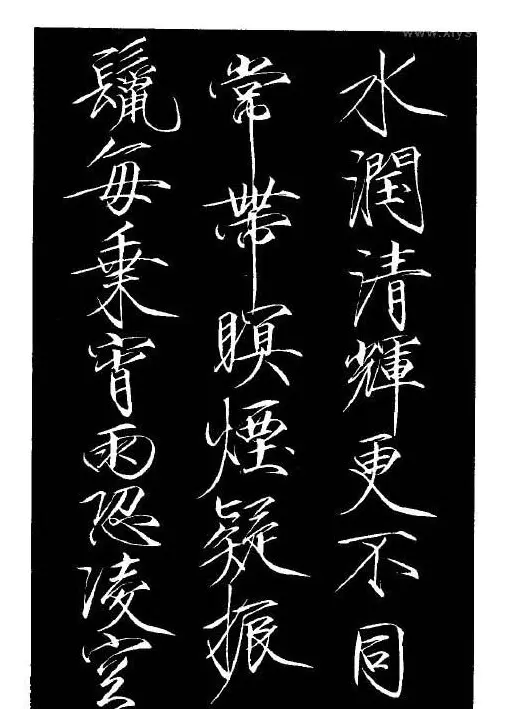 水潤清輝更不同
常帶瞑煙疑振
鬛每乗宵雨恐凌空
www.xiys